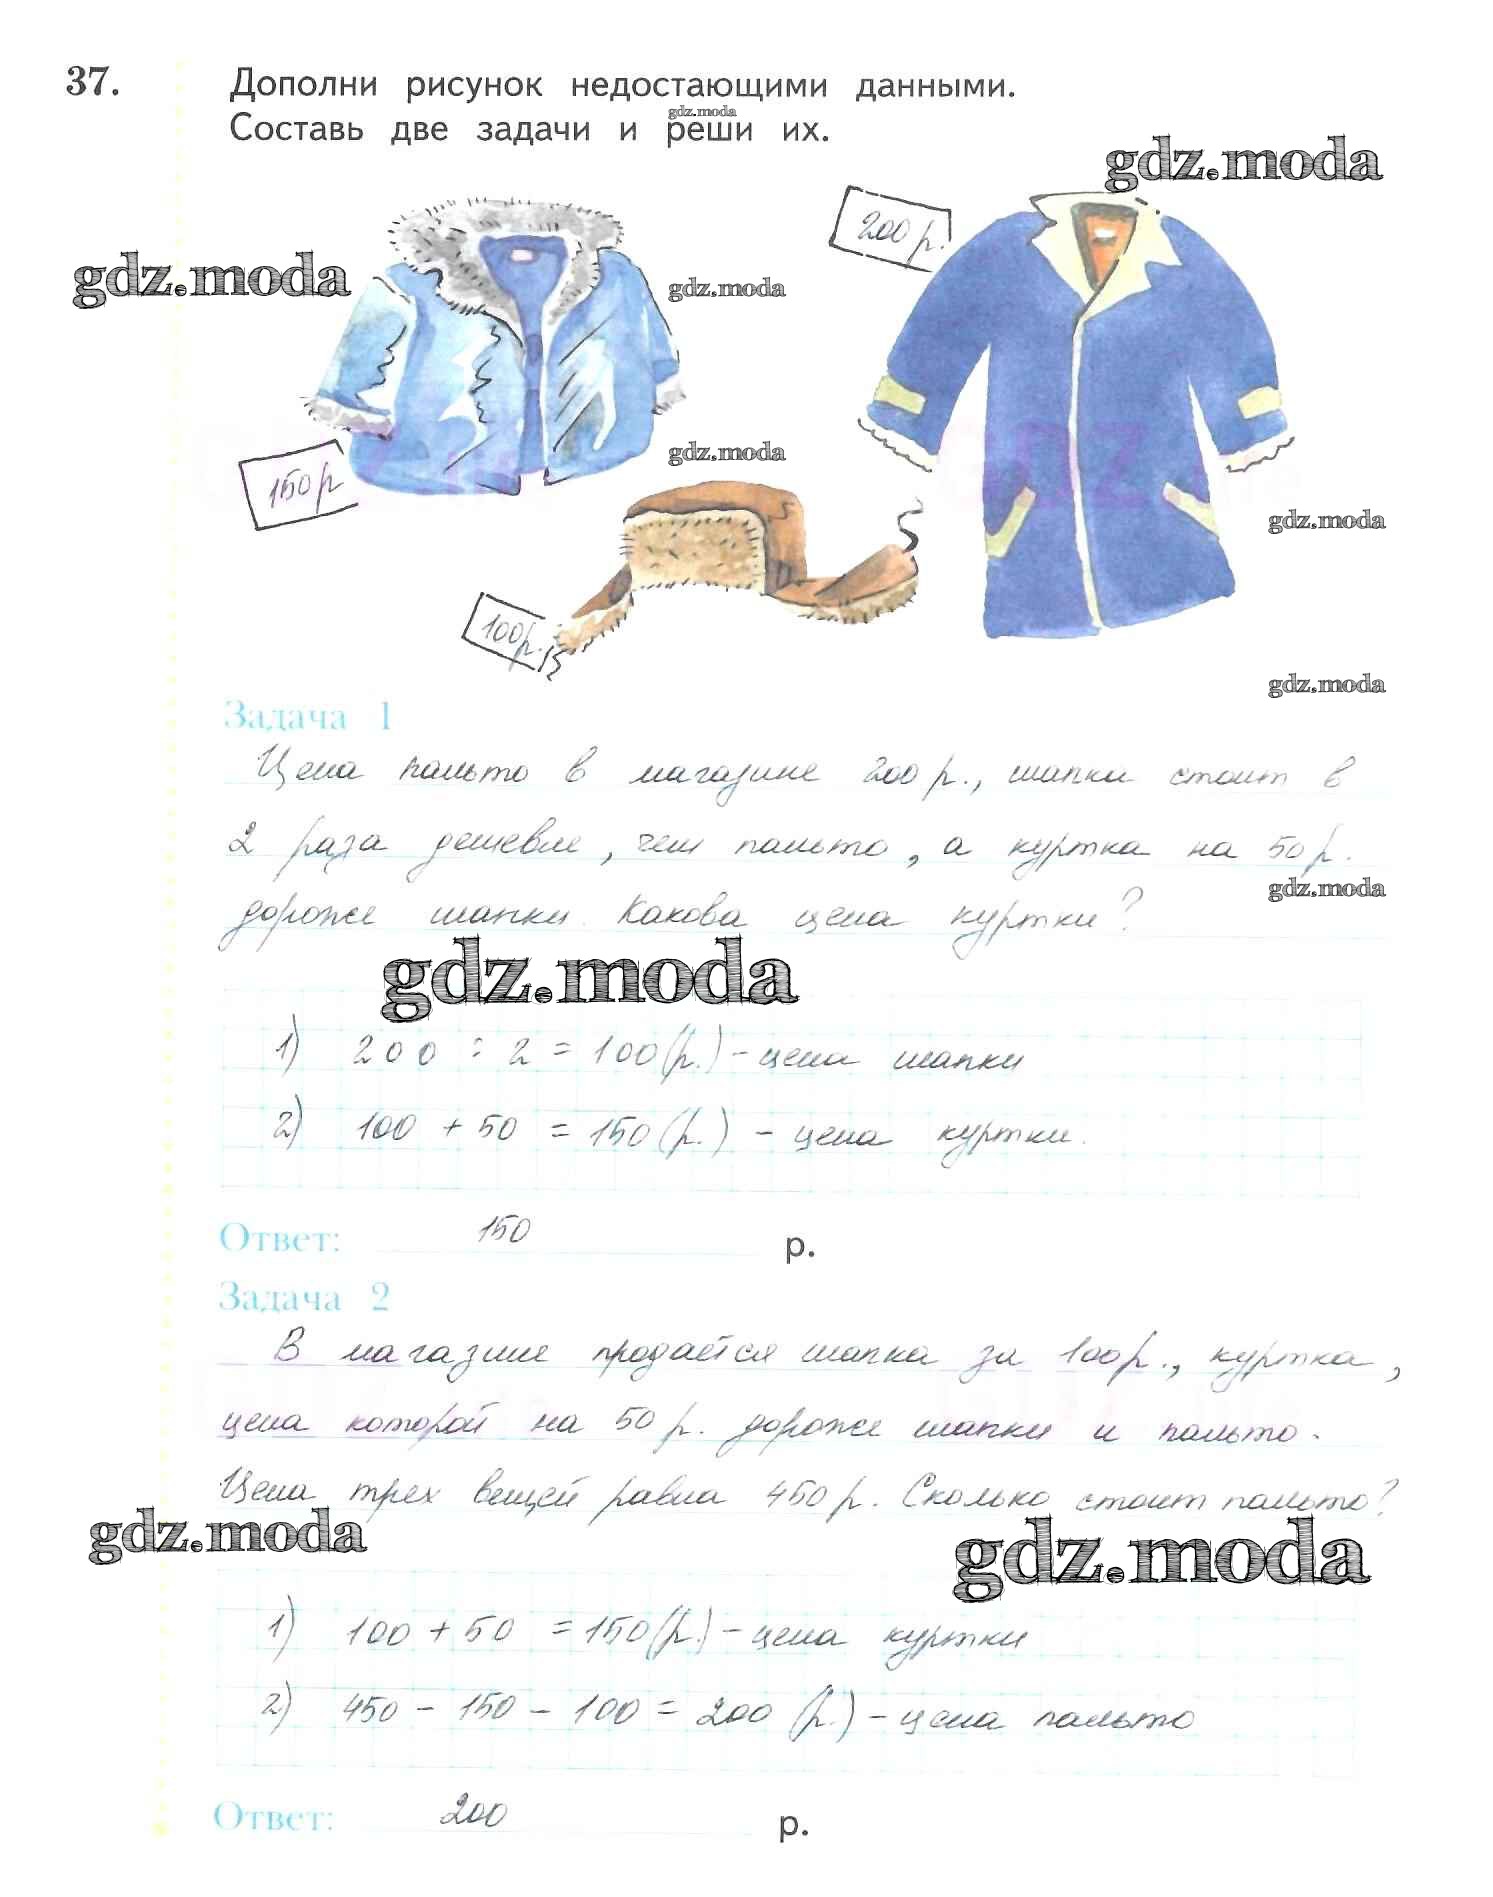 37. Дополни рисунок недостающими данными.
gdz.moda
Составь две задачи и реши их.
gdz.moda
200 р.
gdz.moda
gdz.moda
gdz.moda
150 р
gdz.moda
100 р.
gdz.moda
Задача 1
Цена пальто в магазине 200 р., шапка стоит в
2 раза дешевле, чем пальто, а куртка на 50 р.
gdz.moda
дороже шапки. Какова цена куртки?
gdz.moda
1) 200 : 2 = 100 (р.) - цена шапки
2) 100 + 50 = 150 (р.) - цена куртки.
Ответ: 150 р.
Задача 2
В магазине продаётся шапка за 100 р., куртка,
цена которой на 50 р. дороже шапки и пальто.
Цена трех вещей равна 450 р. Сколько стоит пальто?
gdz.moda
gdz.moda
1) 100 + 50 = 150 (р.) - цена куртки
2) 450 - 150 - 100 = 200 (р.) - цена пальто
Ответ: 200 р.